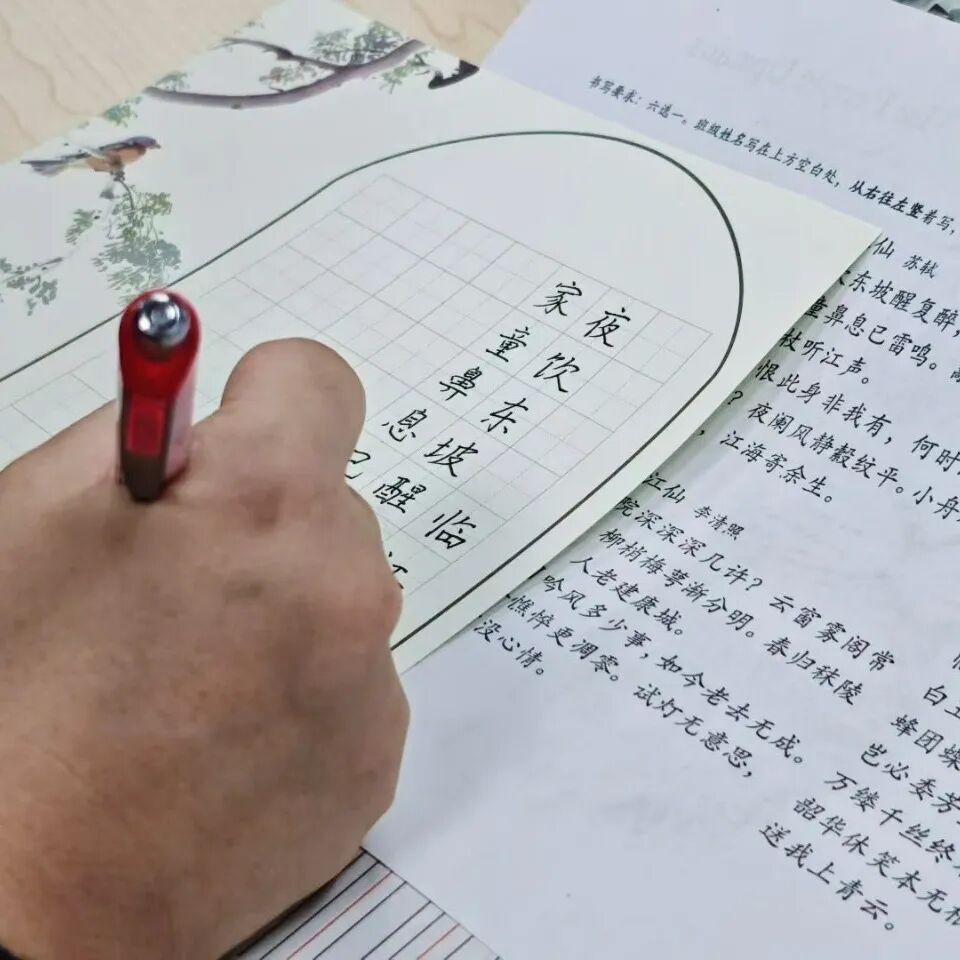 临江
夜饮东坡醒
家童鼻息已
书写要求：六选一。班级姓名写在上方空白处，从右往左竖着写，
仙 苏轼
东坡醒复醉，
童鼻息已雷鸣。
杖听江声。
恨此身非我有，何时
？夜阑风静縠纹平。小舟
，江海寄余生。
江仙 李清照
院深深深几许？云窗雾阁常
柳梢梅萼渐分明。春归秣陵
人老建康城。
吟风多少事，如今老去无成。
憔悴更凋零。试灯无意思，
没心情。
白玉
蜂团蝶
岂必委芳
万缕千丝终
韶华休笑本无根
送我上青云。